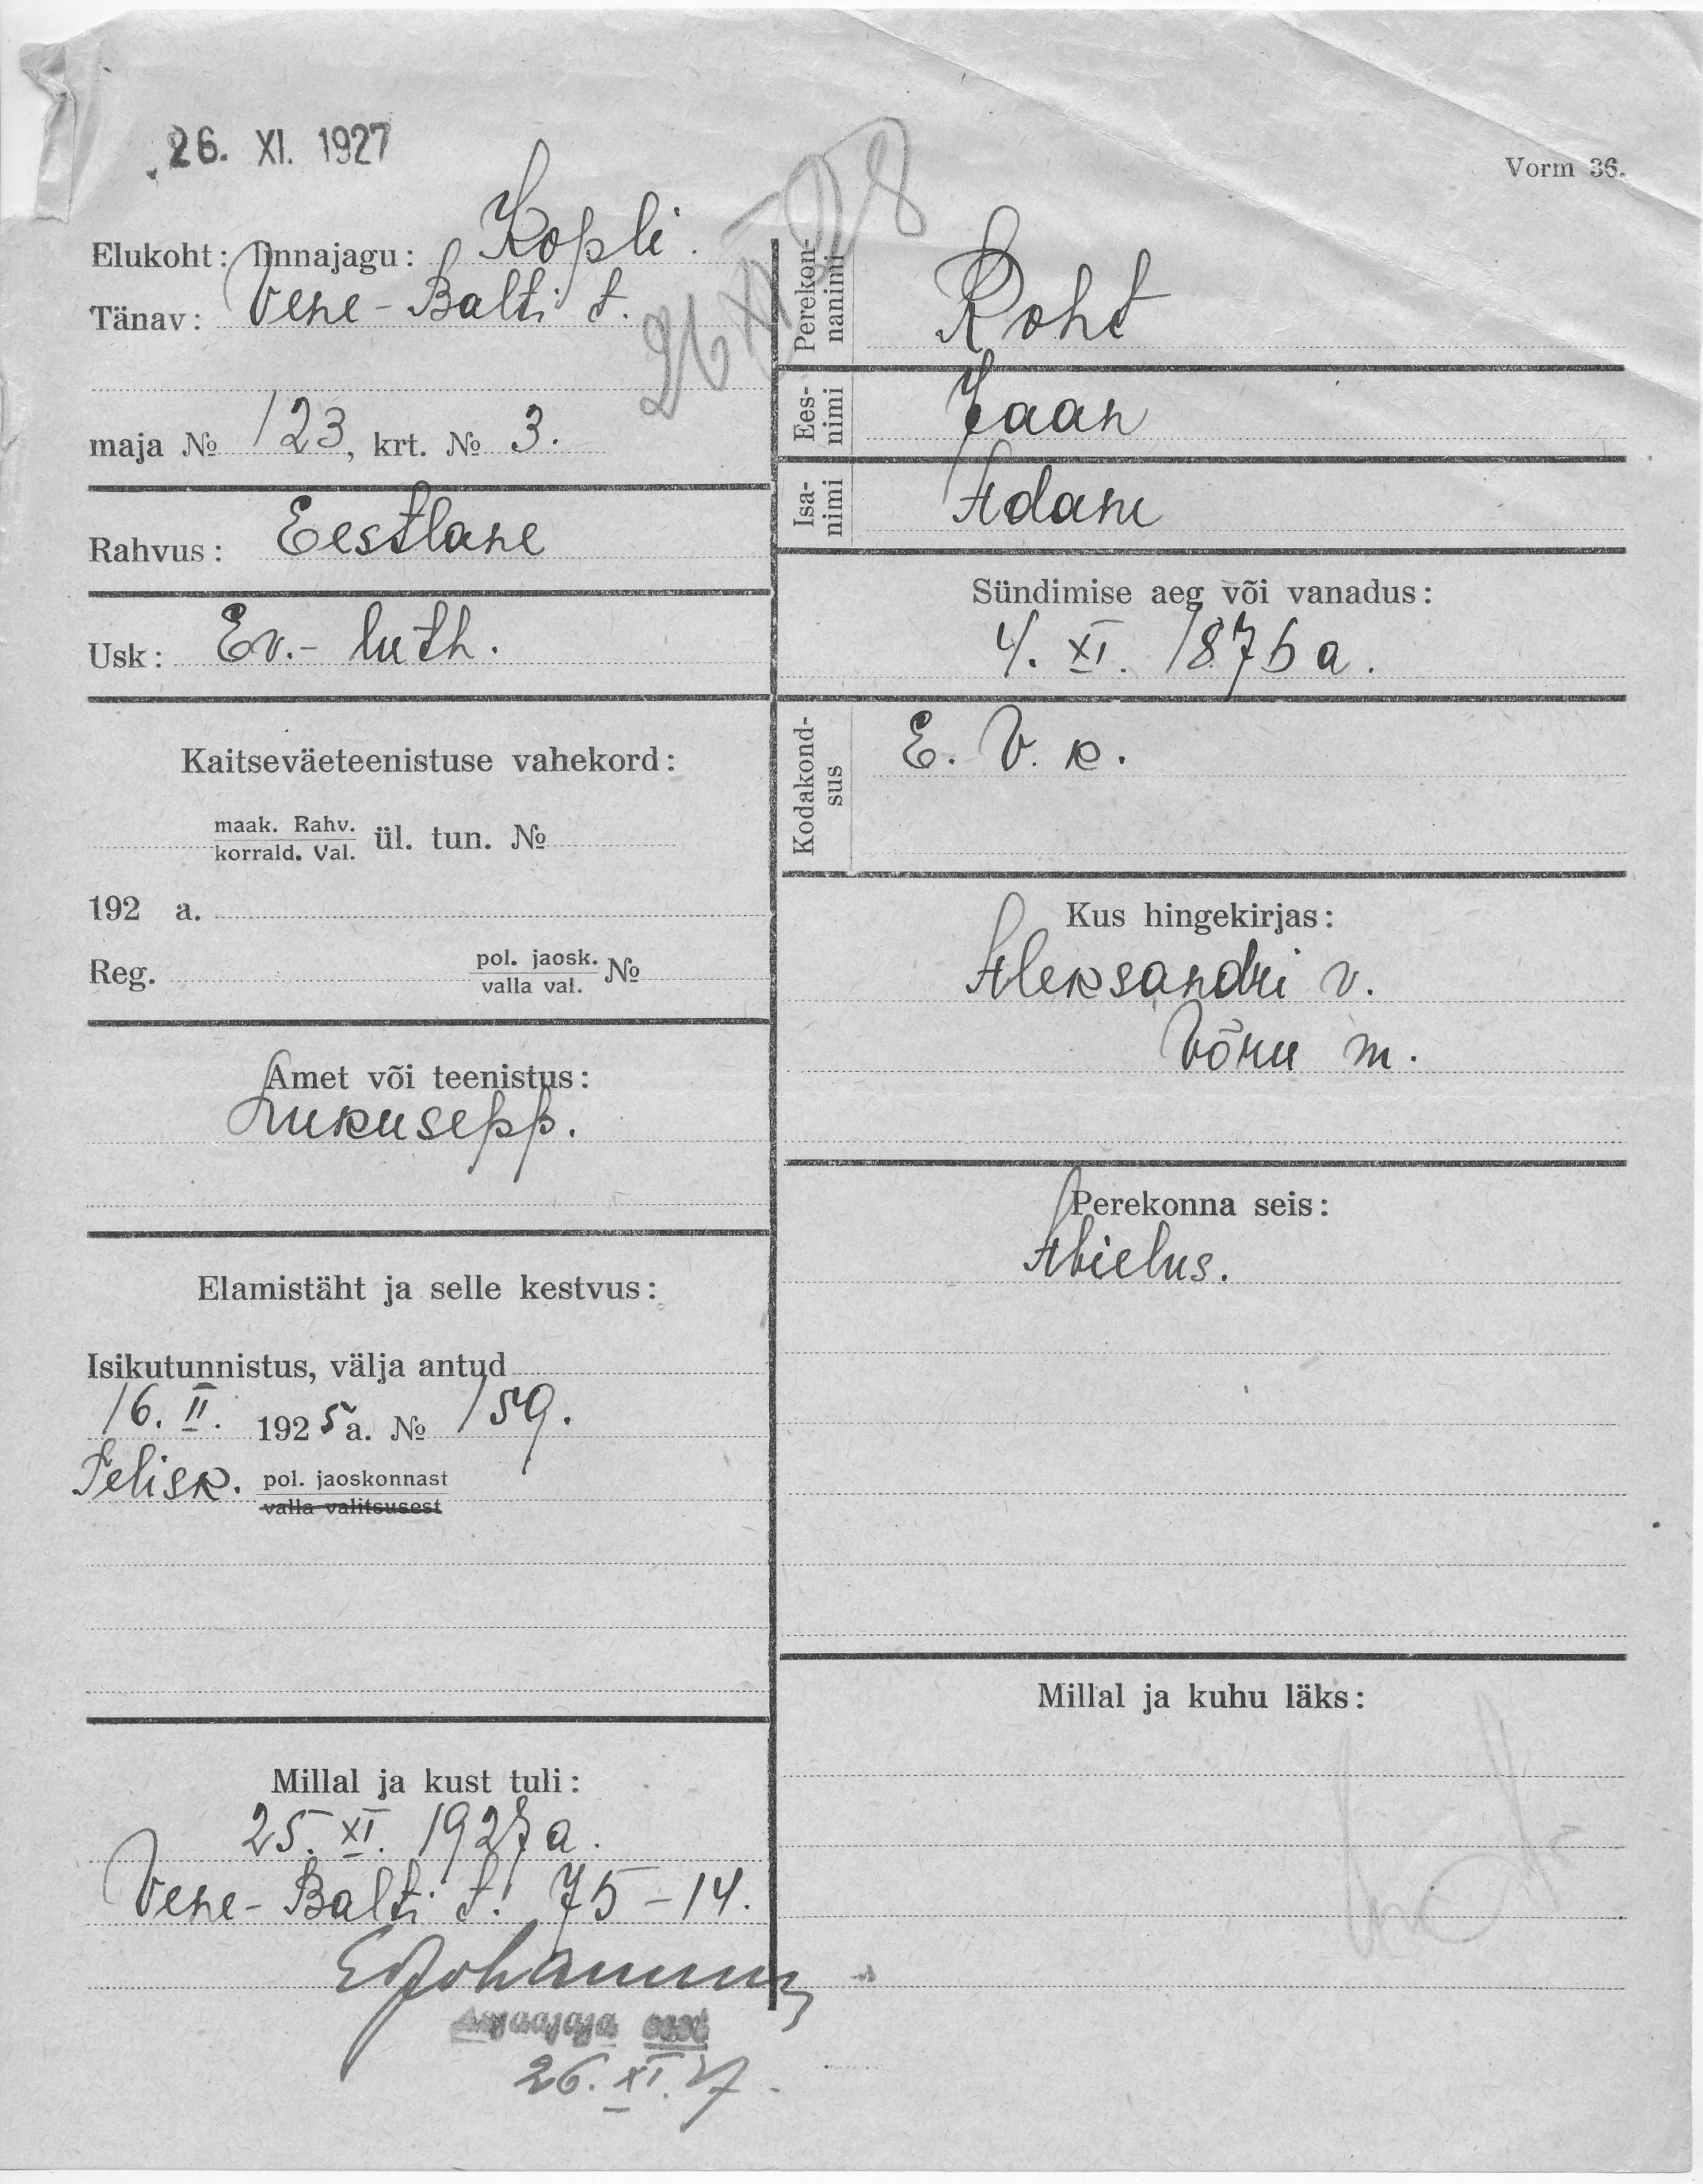 26. XI. 1927
26 XI 28
Vorm 36.
Elukoht: linnajagu: Kopli.
Tänav: Vene-Balti t.
maja № 123, krt. № 3.
Rahvus: Eestlane
Usk: Ev.-luth.
Kaitseväeteenistuse vahekord:
maak. Rahv.
korrald. Val. ül. tun. №
192 a.
Reg. pol. jaosk. №
valla val.
Amet või teenistus:
Lukusepp.
Elamistäht ja selle kestvus:
Isikutunnistus, välja antud
16. II. 1925 a. № 159.
Pelisk. pol. jaoskonnast
valla valitsusest
Millal ja kust tuli:
25. XI. 1927 a.
Vene-Balti t. 75-14.
26. XI. 27.
Perekon-
nanimi Roht
Ees-
nimi Jaan
Isa-
nimi Adam
Sündimise aeg või vanadus:
4. XI. 1876 a.
Kodakond-
sus E. V. k.
Kus hingekirjas:
Aleksandri v.
Võru m.
Perekonna seis:
Abielus.
Millal ja kuhu läks: